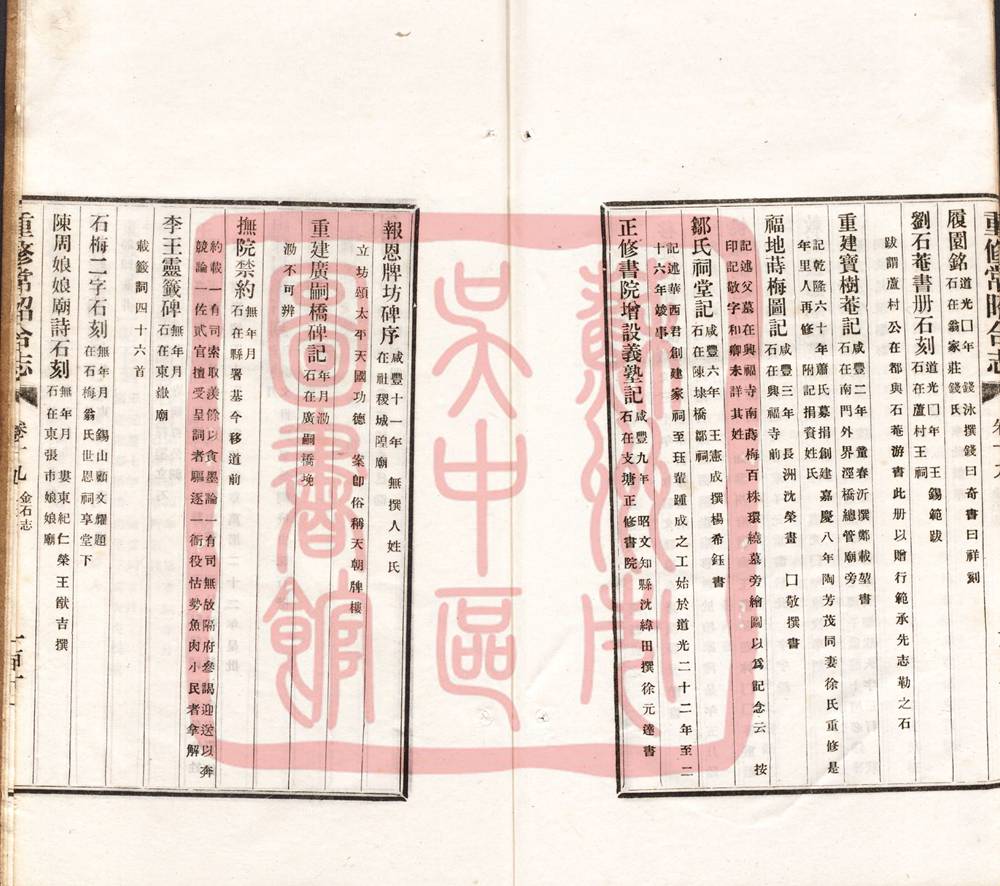 重修常昭合志
履園銘道光囗年 錢泳撰錢曰奇書曰祥刻
石在翁家莊錢氏
劉石菴書册石刻道光囗年 王錫範跋
石在蘆村王祠
跋謂蘆村公在都與石菴游書此册以贈行範承先志勒之石
重建寶樹菴記咸豐二年 童春沂撰鄭載堃書
石在南門外界涇橋總管廟旁
記乾隆六十年蕭氏募捐創建嘉慶八年陶芳茂同妻徐氏重修是
年里人再修 附記捐資姓氏
福地蒔梅圖記咸豐三年 長洲沈榮書 囗敬撰書
石在興福寺前
記述父墓在興福寺南蒔梅百株環繞墓旁繪圖以爲記念云 按
印記敬字和卿未詳其姓
鄒氏祠堂記咸豐六年 王憲成撰楊希鈺書
石在陳埭橋鄒祠
記述華西君創建家祠至珏輩踵成之工始於道光二十二年至二
十六年竣事
正修書院增設義塾記咸豐九年 昭文知縣沈緯田撰徐元達書
石在支塘正修書院
報恩牌坊碑序咸豐十一年 無撰人姓氏
在社稷城隍廟
立坊頌太平天國功德 案卽俗稱天朝牌樓
重建廣嗣橋碑記年月泐
石在廣嗣橋堍
泐不可辨
撫院禁約無年月
石在縣署基今移道前
約載一有司索取羨餘以貪墨論一有司無故隔府參謁迎送以奔
競論一佐貳官擅受呈詞者驅逐一衙役怙勢魚肉小民者拿解
李王靈籤碑無年月
石在東嶽廟
載籤詞四十六首
石梅二字石刻無年月 錫山顧文耀題
在石梅翁氏世恩祠享堂下
陳周娘娘廟詩石刻無年月 婁東紀仁榮王猷吉撰
石在東張市娘娘廟
重修常昭合志 卷十九 金石志